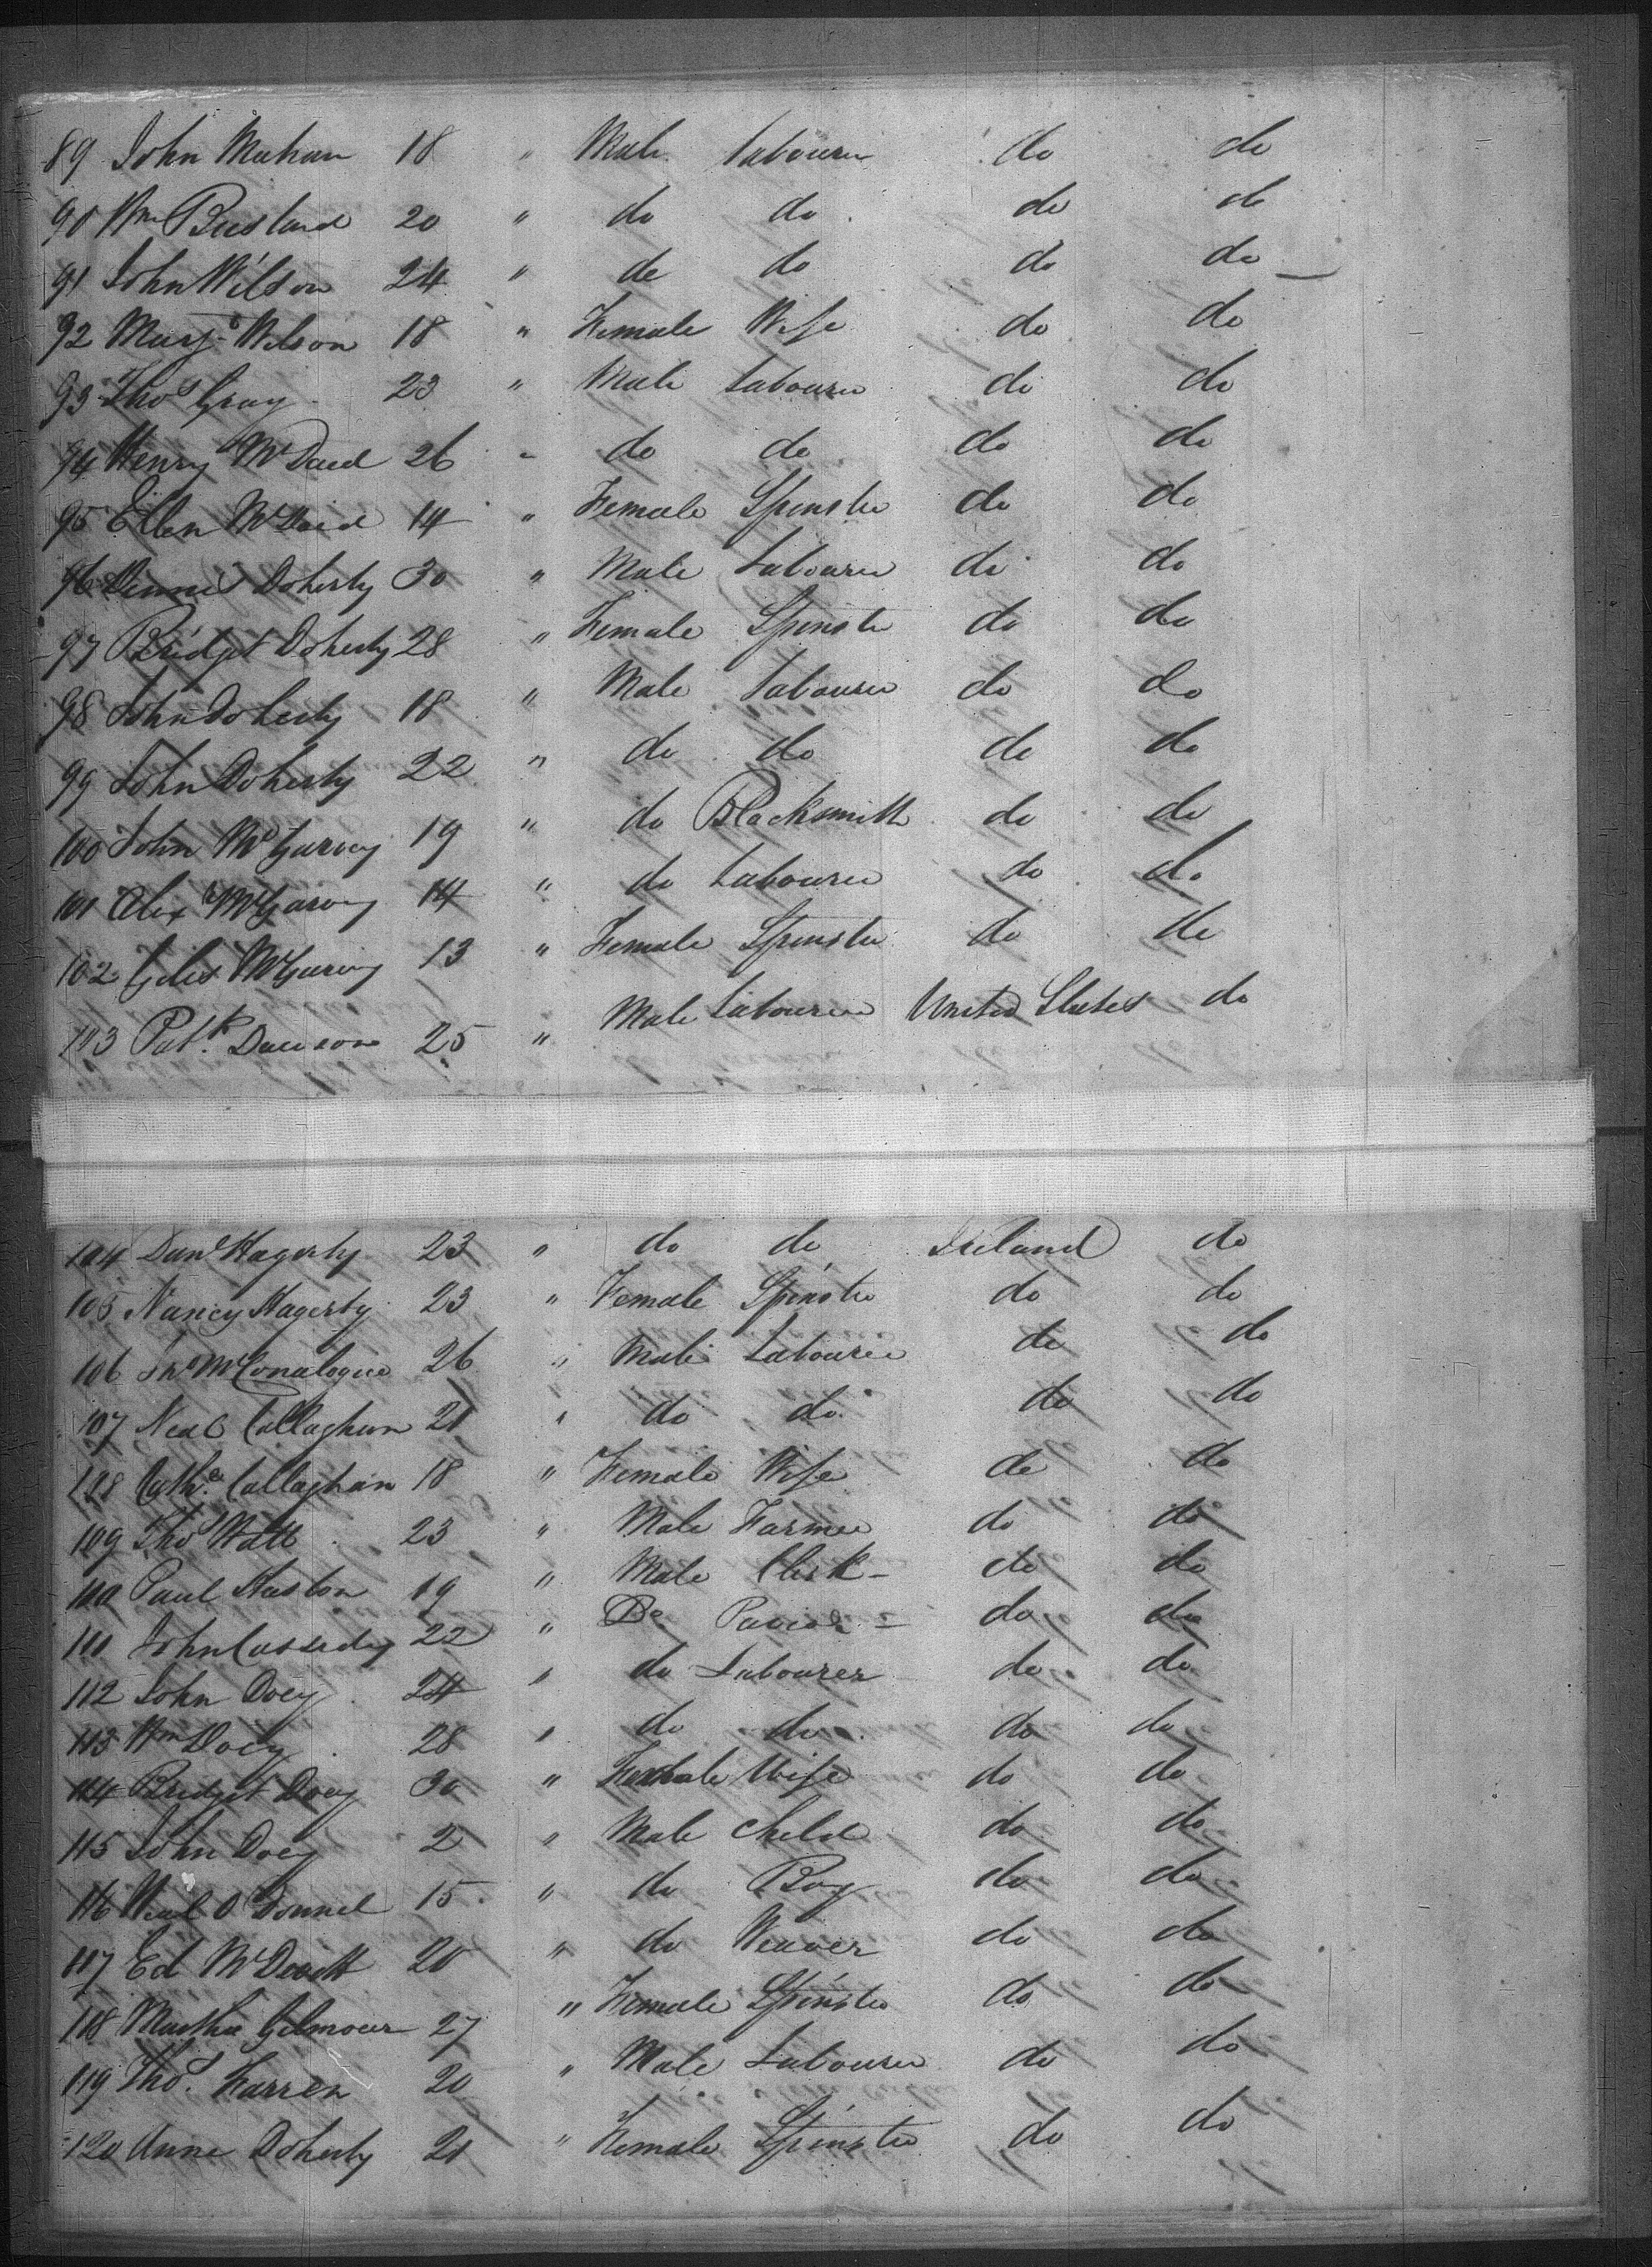 89 John Mahan 18 " Male Labourer do do
90 Wm Beesland 20 " do do do do
91 John Wilson 24 " do do do do
92 Marg. Wilson 18 " Female Wife do do
93 Thos Gray 23 " Male Labourer do do
94 Henry McDaid 26 " do do do do
95 Ellen McDaid 14 " Female Spinster do do
96 Dennis Doherty 30 " Male Labourer do do
97 Bridget Doherty 28 " Female Spinster do do
98 John Doherty 18 " Male Labourer do do
99 John Doherty 22 " do do do do
100 John McGarvey 19 " do Blacksmith do do
101 Alexr McGarvey 14 " do Labourer do do
102 Giles McGarvey 13 " Female Spinster do do
103 Patk. Dawson 25 " Male Labourer United States do
104 Danl Hagerty 23 " do do Ireland do
105 Nancy Hagerty 23 " Female Spinster do do
106 Jno McConalogue 26 " Male Labourer do do
107 Neal Callaghan 21 " do do do do
108 Cathe. Callaghan 18 " Female Wife do do
109 Thos Watt 23 " Male Farmer do do
110 Paul Huston 19 " Male Clerk - do do
111 John Cassedy 22 " Do do do
112 John Doey 24 " do Labourer do do
113 Wm Doey 28 " do do do do
114 Bridget Doey 30 " Female Wife do do
115 John Doey 2 " Male Child do do
116 Neal O'Donnel 15 " do Boy do do
117 Ed McDevitt 20 " do Weaver do do
118 Martha Gilmour 27 " Female Spinster do do
119 Thos. Farren 20 " Male Labourer do do
120 Anne Doherty 21 " Female Spinster do do